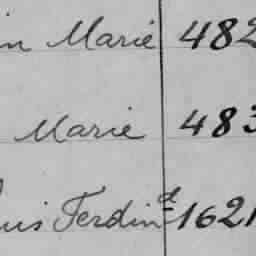 in Marie 482
Marie 483
uis Ferdind 1621